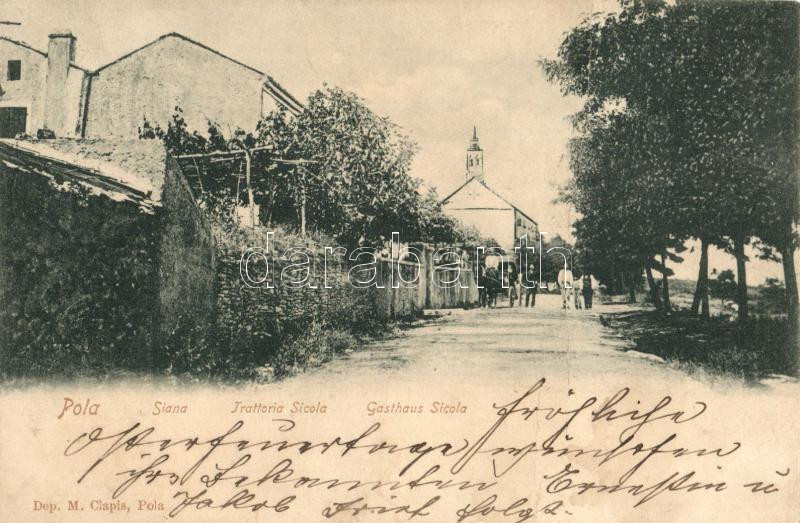 darabanth
Pola Siana Trattoria Sicola Gasthaus Sicola
fröhliche
Osterfeuertage wünschen
ihre Bekannten Ernestin u
Jakob Brief folgt.
Dep. M. Clapis, Pola